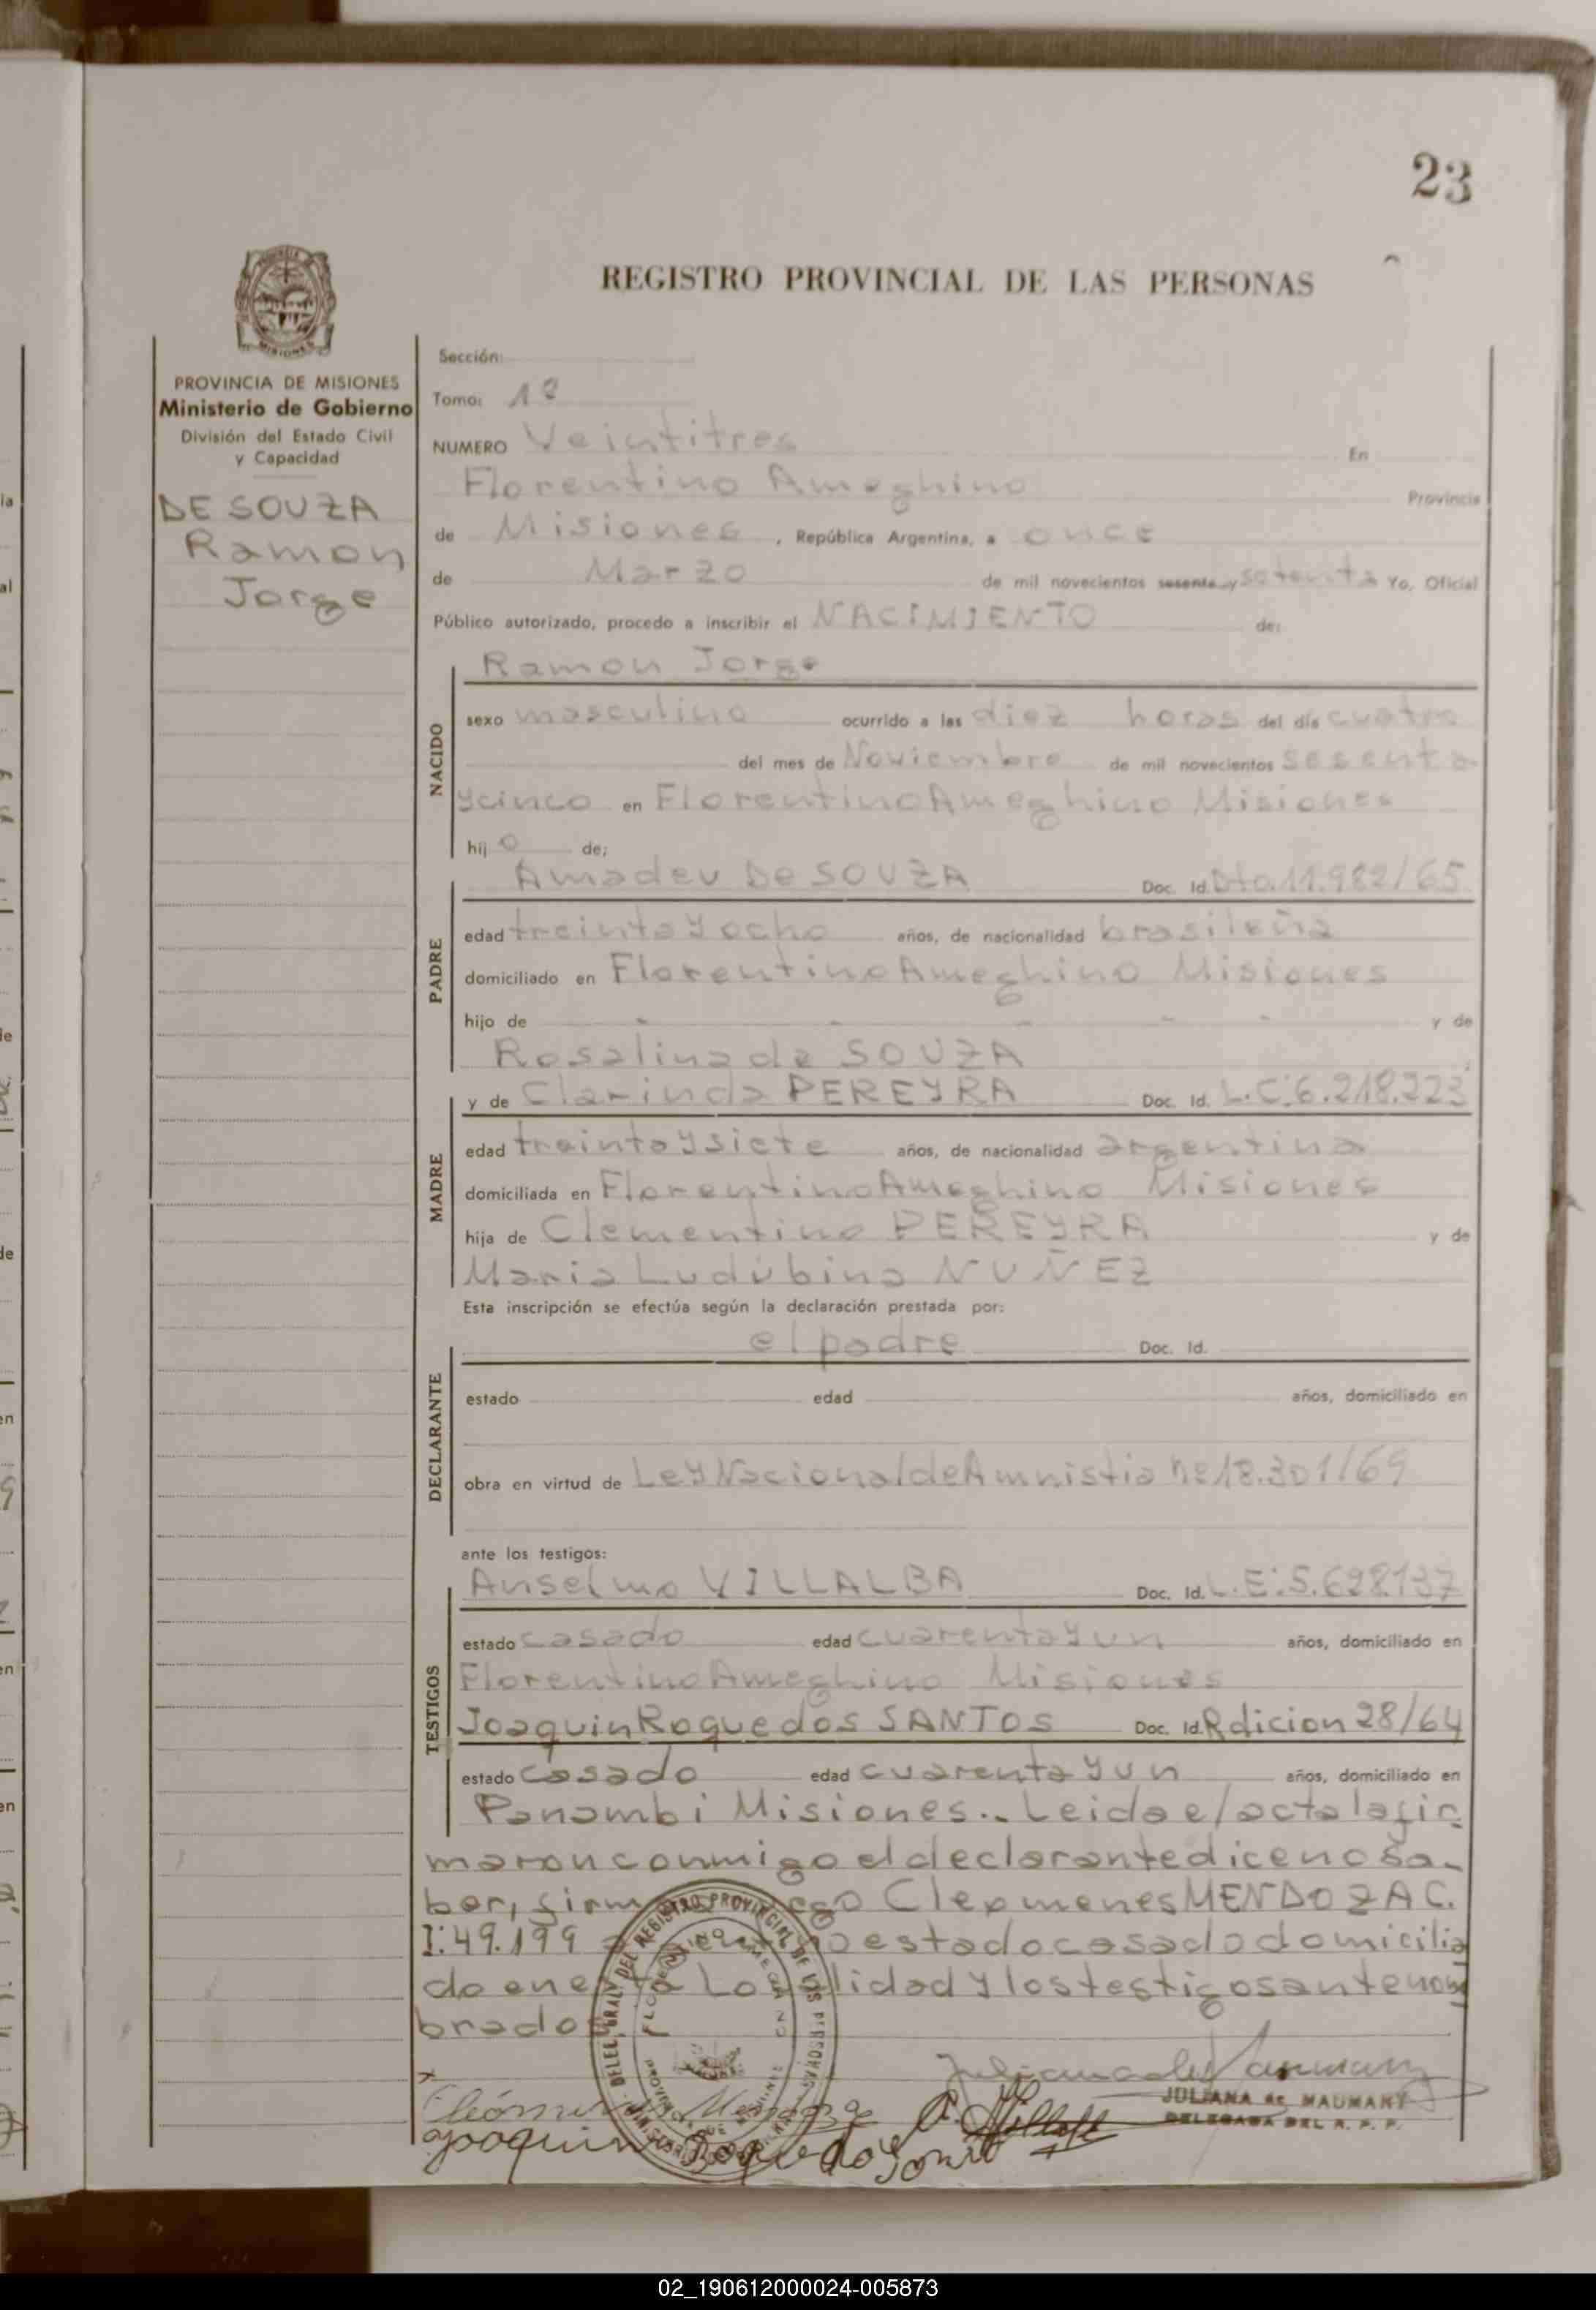 23
REGISTRO PROVINCIAL DE LAS PERSONAS
PROVINCIA DE MISIONES
Ministerio de Gobierno
División del Estado Civil
y Capacidad
DE SOUZA
Ramon
Jorge
Sección:
Tomo: 1º
NUMERO Veintitres En
Florentino Ameghino Provincia
de Misiones, República Argentina, a once
de Marzo de mil novecientos sesenta y setenta Yo, Oficial
Público autorizado, procedo a inscribir el NACIMIENTO de:
NACIDO
Ramon Jorge
sexo masculino ocurrido a las diez horas del día cuatro
del mes de Noviembre de mil novecientos sesenta
y cinco en Florentino Ameghino Misiones
hij o de;
PADRE
Amadeu De SOUZA Doc. Id. Dto. 11.982/65
edad treinta y ocho años, de nacionalidad brasileña
domiciliado en Florentino Ameghino Misiones
hijo de - - - - - y de
Rosalina de SOUZA
MADRE
y de Clarinda PEREYRA Doc. Id. L.C: 6.218.223
edad treinta y siete años, de nacionalidad argentina
domiciliada en Florentino Ameghino Misiones
hija de Clementino PEREYRA y de
Maria Ludubina NUÑEZ
Esta inscripción se efectúa según la declaración prestada por:
DECLARANTE
el padre Doc. Id.
estado edad años, domiciliado en
obra en virtud de Ley Nacional de Amnistia nº 18.301/69
ante los testigos:
TESTIGOS
Anselmo VILLALBA Doc. Id. L.E: 5.628.137
estado casado edad cuarenta y un años, domiciliado en
Florentino Ameghino Misiones
Joaquin Roque dos SANTOS Doc. Id. Rdicion 28/64
estado casado edad cuarenta y un años, domiciliado en
Panambi Misiones.- Leida el acta la fir
maron conmigo el declarante dice no sa-
ber, firm Cleomenes MENDOZA C.
I: 49.199 estado casado domicilia
do en esta Localidad y los testigos antenom
brado
JULIANA de MAUMANY
DELEGADA DEL R. P. P.
Joaquin Roque do
02_190612000024-005873